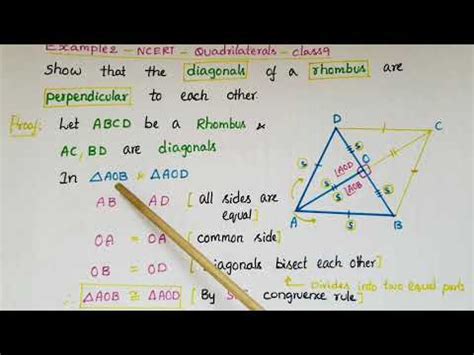 Example2 - NCERT - Quadrilaterals - class9
Show that the diagonals of a rhombus are
perpendicular to each other.
Proof: Let ABCD be a Rhombus &
AC, BD are diagonals
In △AOB & △AOD
AB AD [all sides are
equal]
OA = OA [common side]
OB = OD [Diagonals bisect each other]
Divides into two equal parts
∴ △AOB ≅ △AOD [By congruence rule]
D
C
S
S
AOD
O
S
S
AOB
S
A
S
B